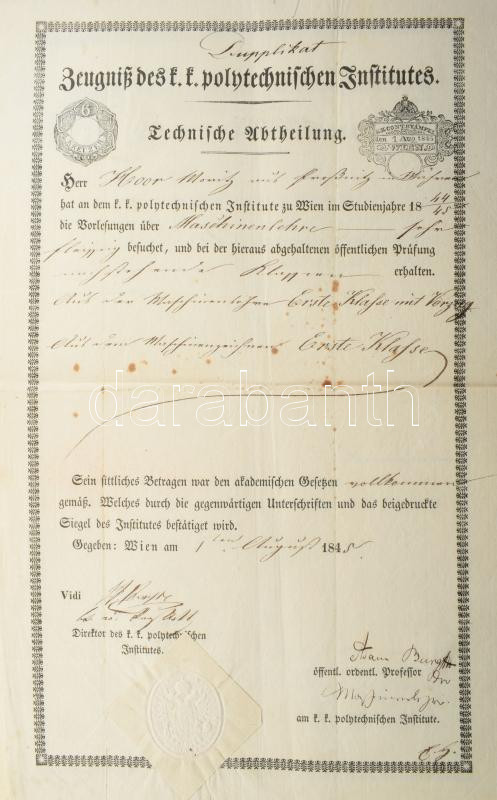 Supplikat
Zeugniß des k. k. polytechnischen Institutes.
Technische Abtheilung.
6
KREUZER
K.K. CONT. STÄMPEL
den 1 Aug 1845
WIEN
Herr Hoor Moritz aus Proßnitz in Mähren
hat an dem k. k. polytechnischen Institute zu Wien im Studienjahre 18 44/45
die Vorlesungen über Maschinenlehre sehr
fleißig besucht, und bei der hieraus abgehaltenen öffentlichen Prüfung
nachstehende Klassen erhalten.
Aus der Maschinenlehre Erste Klasse mit Vorzug
Aus dem Maschinenzeichnen Erste Klasse
darabanth
Sein sittliches Betragen war den akademischen Gesetzen vollkommen
gemäß. Welches durch die gegenwärtigen Unterschriften und das beigedruckte
Siegel des Institutes bestätiget wird.
Gegeben: Wien am 1ten August 1845.
Vidi
Direktor des k. k. polytechnischen
Institutes.
Adam Burg
öffentl. ordentl. Professor der
Maschinenlehre
am k. k. polytechnischen Institute.